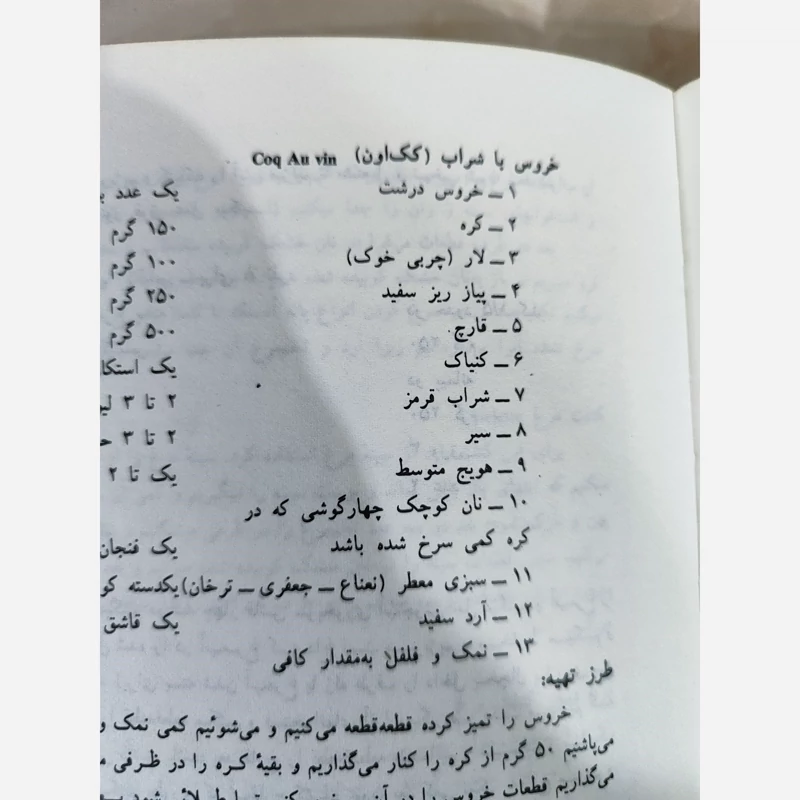 خروس با شراب (کک‌اون) Coq Au vin
۱ ــ خروس درشت یک عدد
۲ ــ کره ۱۵۰ گرم
۳ ــ لار (چربی خوک) ۱۰۰ گرم
۴ ــ پیاز ریز سفید ۲۵۰ گرم
۵ ــ قارچ ۵۰۰ گرم
۶ ــ کنیاک یک استکا
۷ ــ شراب قرمز ۲ تا ۳ لیـ
۸ ــ سیر ۲ تا ۳ حـ
۹ ــ هویج متوسط یک تا ۲
۱۰ ــ نان کوچک چهارگوشی که در
کره کمی سرخ شده باشد یک فنجان
۱۱ ــ سبزی معطر (نعناع ــ جعفری ــ ترخان) یکدسته کو
۱۲ ــ آرد سفید یک قاشق
۱۳ ــ نمک و فلفل به‌مقدار کافی
طرز تهیه:
خروس را تمیز کرده قطعه‌قطعه می‌کنیم و می‌شوئیم کمی نمک و
می‌پاشیم ۵۰ گرم از کره را کنار می‌گذاریم و بقیهٔ کره را در ظرفی
می‌گذاریم قطعات خروس را در آن